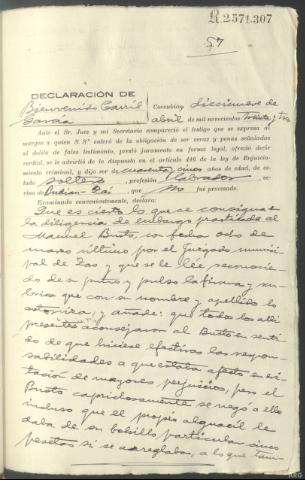 R.2571.307
57
DECLARACIÓN DE
Bienvenido Carril
García
Corcubión dieciseis de
abril de mil novecientos treinta y tres
Ante el Sr. Juez y mi Secretaría compareció el testigo que se expresa al
margen a quien S. Sª enteró de la obligación de ser veraz y penas señaladas
al delito de falso testimonio, prestó juramento en forma legal, ofreció decir
verdad, se le advirtió de lo dispuesto en el artículo 446 de la ley de Enjuicia-
miento criminal, y dijo ser de cuarenta y cinco años de edad, de es-
tado soltero, profesión labrador, ve-
cino de , que no fué procesado.
Examinado convenientemente, declara:
Que es cierto lo que se consigna en
la diligencia de embargo practicada al
Manuel Busto, con fecha ocho de
marzo último por el Juzgado munici-
pal de Zas y que se le lée, reconocien-
do de su puño y pulso la firma y rú-
brica que con su nombre y apellido la
autoriza, y añade: que todos los allí
presentes aconsejaron al Busto en senti-
do de que hiciese efectivas las respon-
sabilidades a que estaba afecto en evi-
tación de mayores perjuicios, pero el
Busto caprichosamente se negó a ello
incluso que el propio alguacil le
daba de su bolsillo particular cinco
pesetas si se arreglaban, a lo que tam-